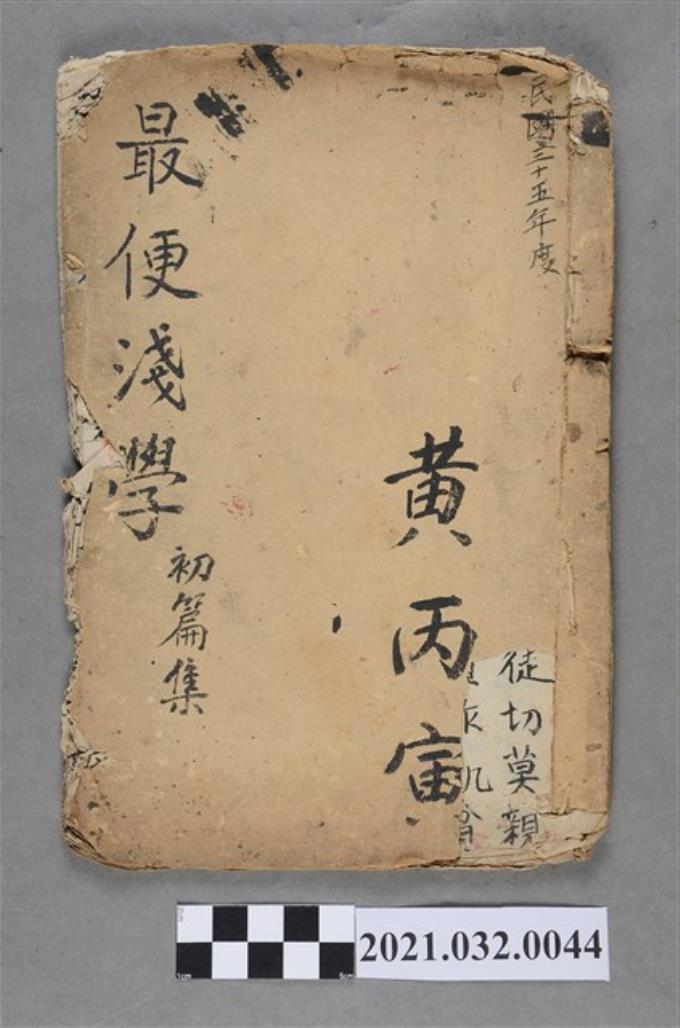 民國三十五年度
徒切莫親
黃丙寅
最便淺學
初篇集
1cm
5cm
2021.032.0044